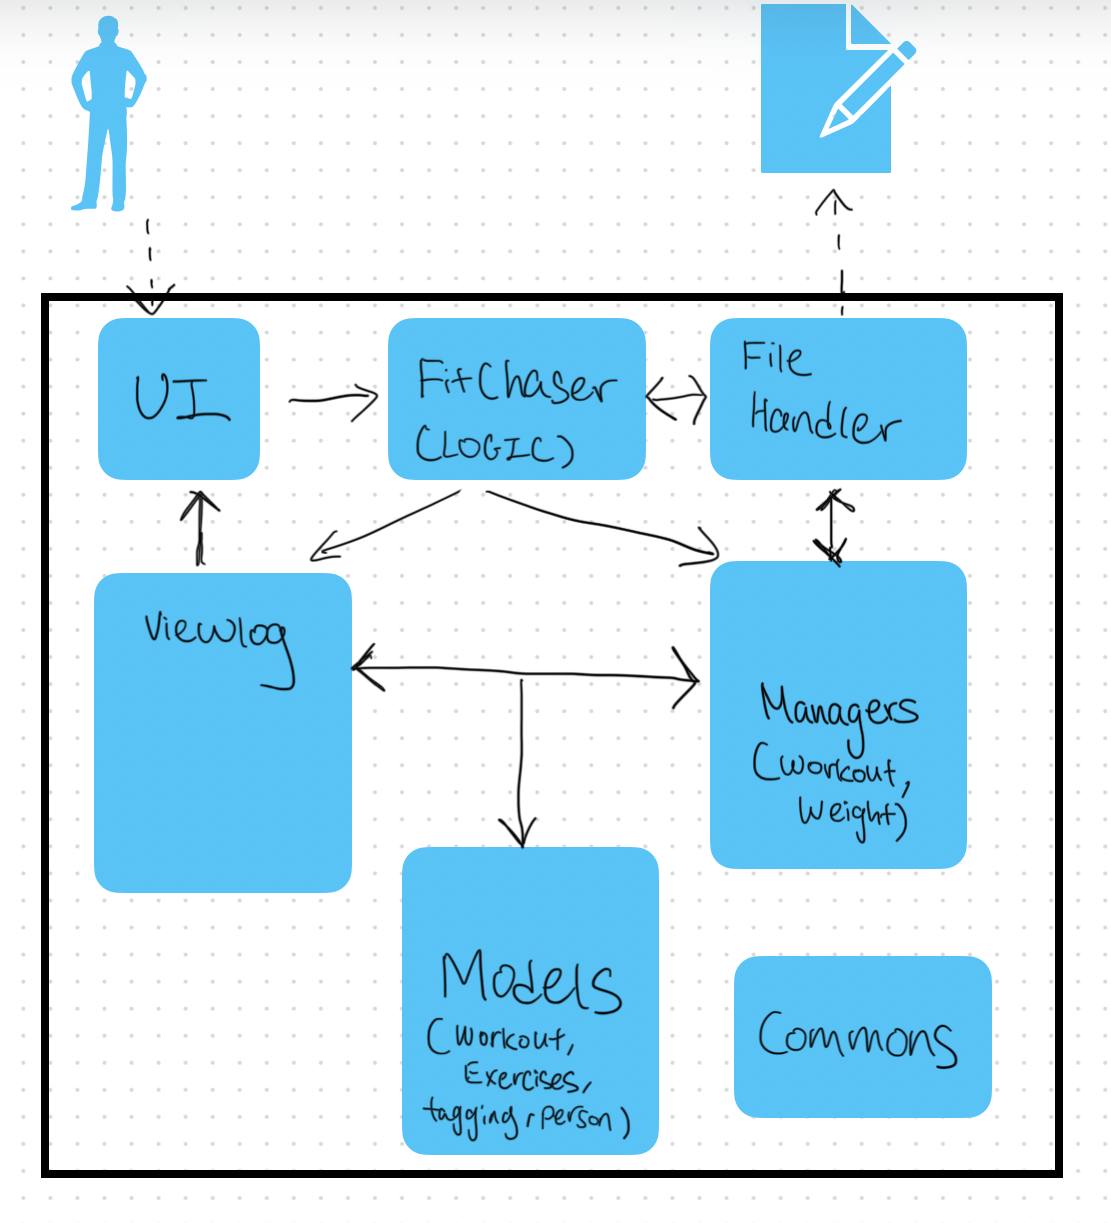 UI
FitChaser
(LOGIC)
File
Handler
Viewlog
Managers
(Workout,
Weight)
Models
(Workout,
Exercises,
tagging, person)
Commons